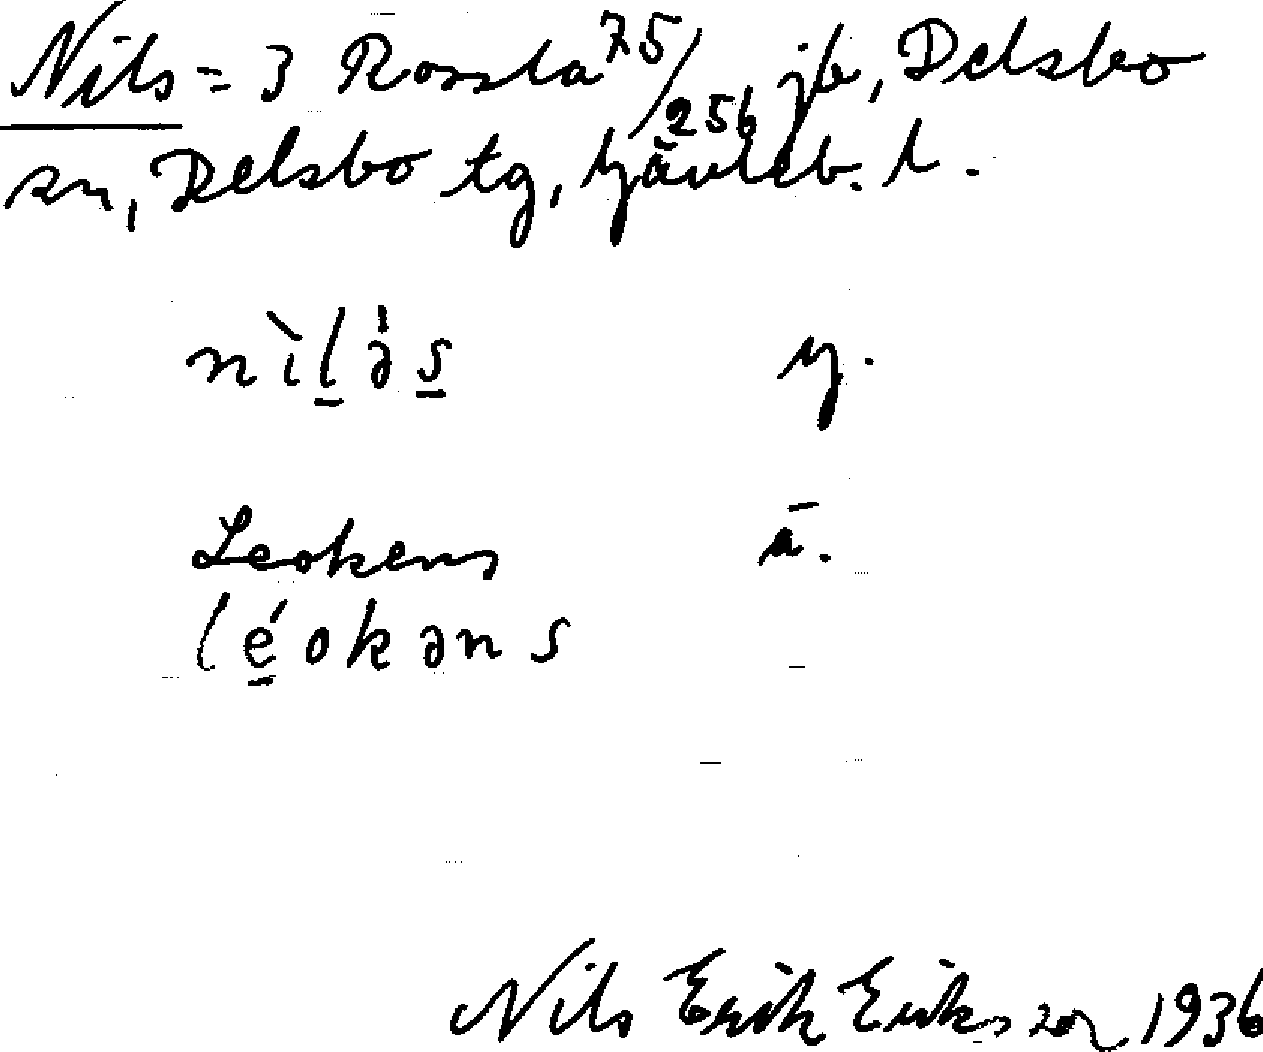 Nils = 3 Rossla 75/256 jb, Delsbo
sn, Delsbo tg, Gävleb. l.
nìlə̀s y.
Leokens ä.
léokəns
Nils Erik Eriksson 1936